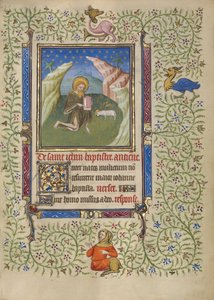 De saint jehan baptiste. antiene
Inter natos mulierum nõ
surrexit maior iohanne
baptista. verset
Fuit homo missus a deo. response